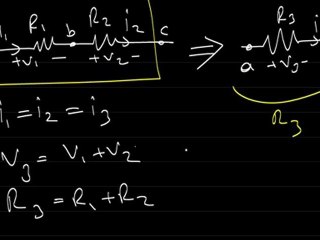 R₁ b R₂ i₂ c ⇒ R₃ i
+V₁ − +V₂ − a +V₃ −
R₃
i₁ = i₂ = i₃
V₃ = V₁ + V₂
R₃ = R₁ + R₂